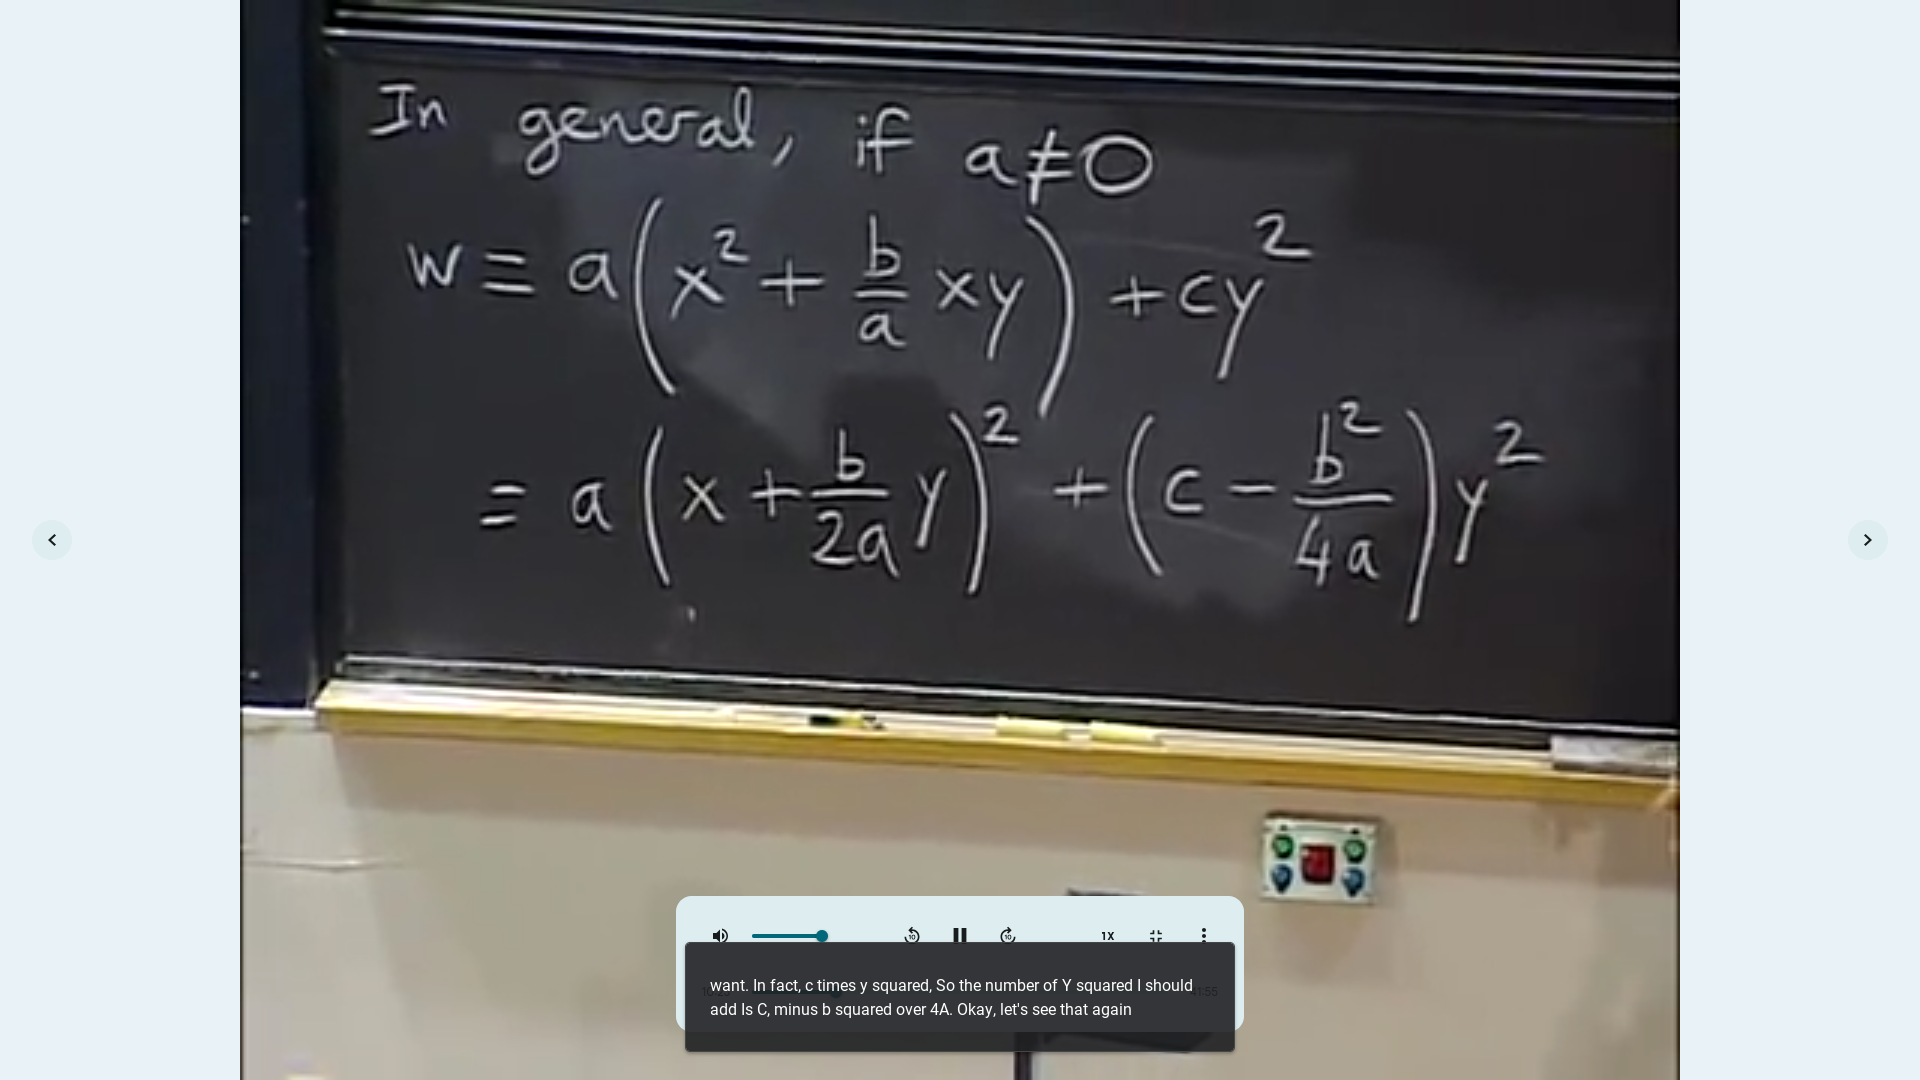 In general, if a≠0
w = a(x² + b/a xy) + cy²
= a(x + b/2a y)² + (c − b²/4a) y²
1X
want. In fact, c times y squared, So the number of Y squared I should
add Is C, minus b squared over 4A. Okay, let's see that again